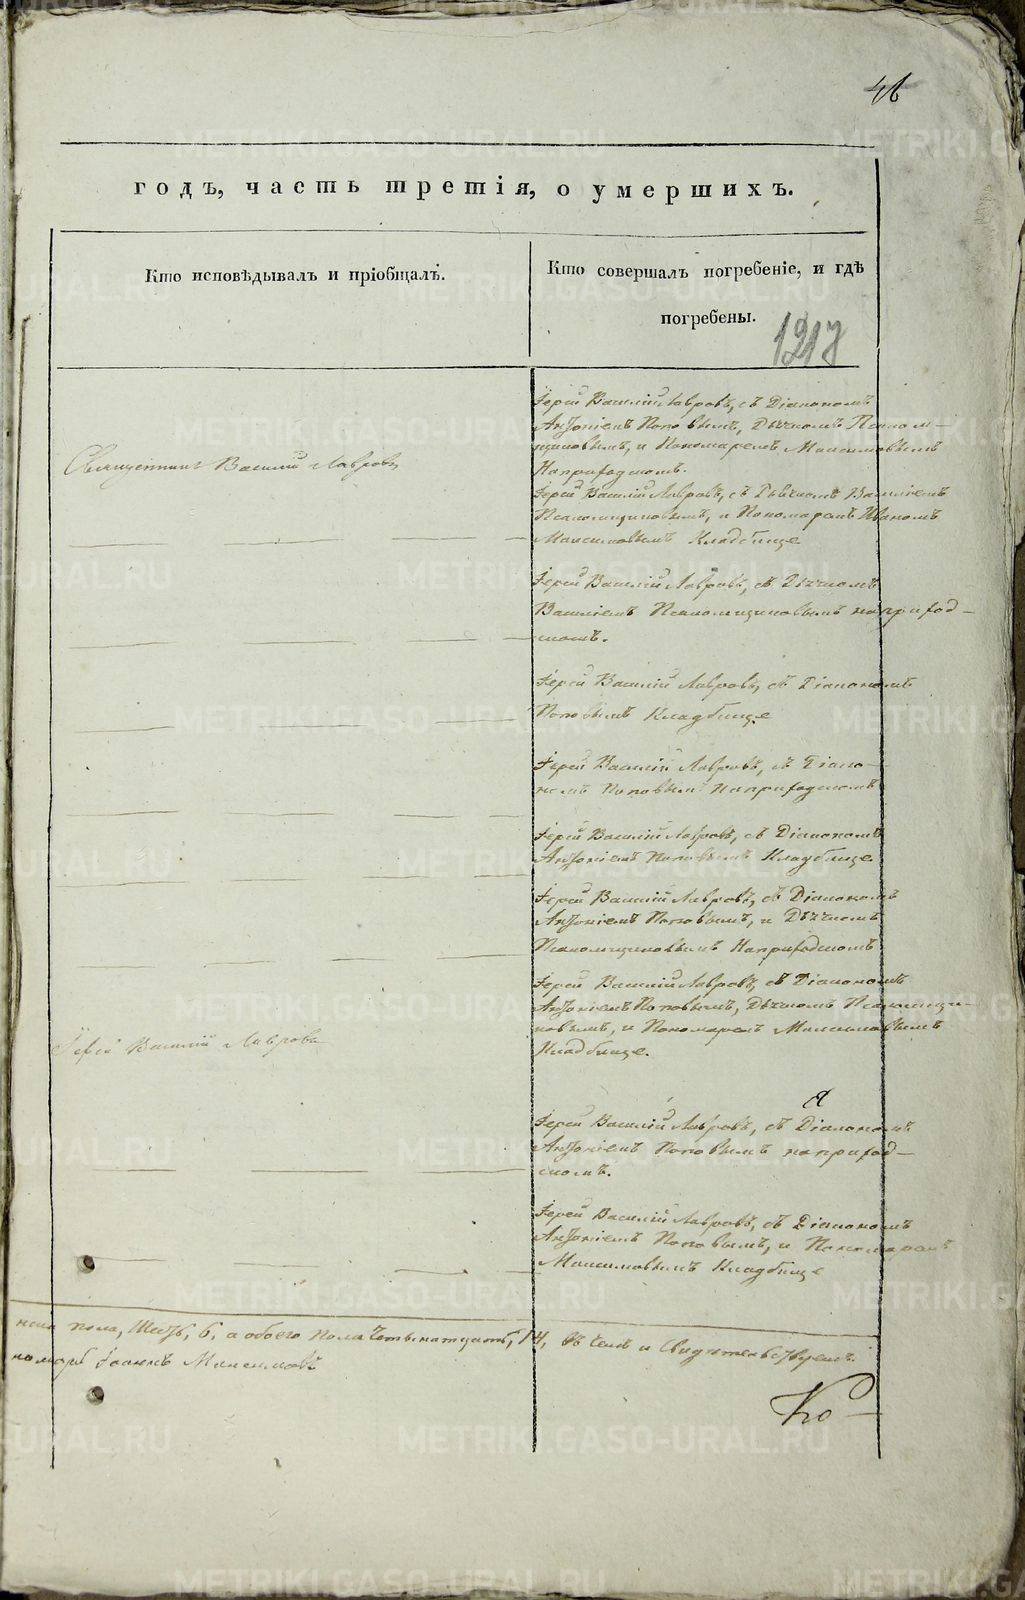 46
годъ, часть третія, о умершихъ.
Кто исповѣдывалъ и пріобщалъ.
Кто совершалъ погребеніе, и гдѣ
погребены.
1217
Священникъ Василій Лавровъ
Іерей Василій Лавровъ, съ Діакономъ
Антоніемъ Поповымъ, Дьячкомъ Псалом-
щиковымъ, и Пономаремъ Максимовымъ
На приходском.
Іерей Василій Лавровъ, съ Дьячкомъ Василіемъ
Псаломщиковымъ, и Пономаремъ Иваномъ
Максимовымъ Кладбище
Іерей Василій Лавровъ, съ Дьячкомъ
Василіемъ Псаломщиковымъ на приход-
скомъ.
Іерей Василій Лавровъ, съ Діакономъ
Поповымъ Кладбище
Іерей Василій Лавровъ, съ Діако-
номъ Поповымъ На приходскомъ
Іерей Василій Лавровъ, съ Діакономъ
Антоніемъ Поповымъ Кладбище
Іерей Василій Лавровъ, съ Діакономъ
Антоніемъ Поповымъ, и Дьячкомъ
Псаломщиковымъ На приходскомъ
Іерей Василій Лавровъ, съ Діакономъ
Антоніемъ Поповымъ, Дьячкомъ Псаломщи-
ковымъ, и Пономаремъ Максимовымъ
Кладбище.
Іерей Василій Лавровъ
Іерей Василій Лавровъ, съ Діакономъ
Антоніемъ Поповымъ на приход-
скомъ.
Іерей Василій Лавровъ, съ Діакономъ
Антоніемъ Поповымъ, и Пономаремъ
Максимовымъ Кладбище
пола, Шесть, 6, а обоего пола Четырнатцать, 14, въ чемъ и Свидѣтельствуемъ.
Іоаннъ Максимовъ
Ко-
METRIKI.GASO-URAL.RU